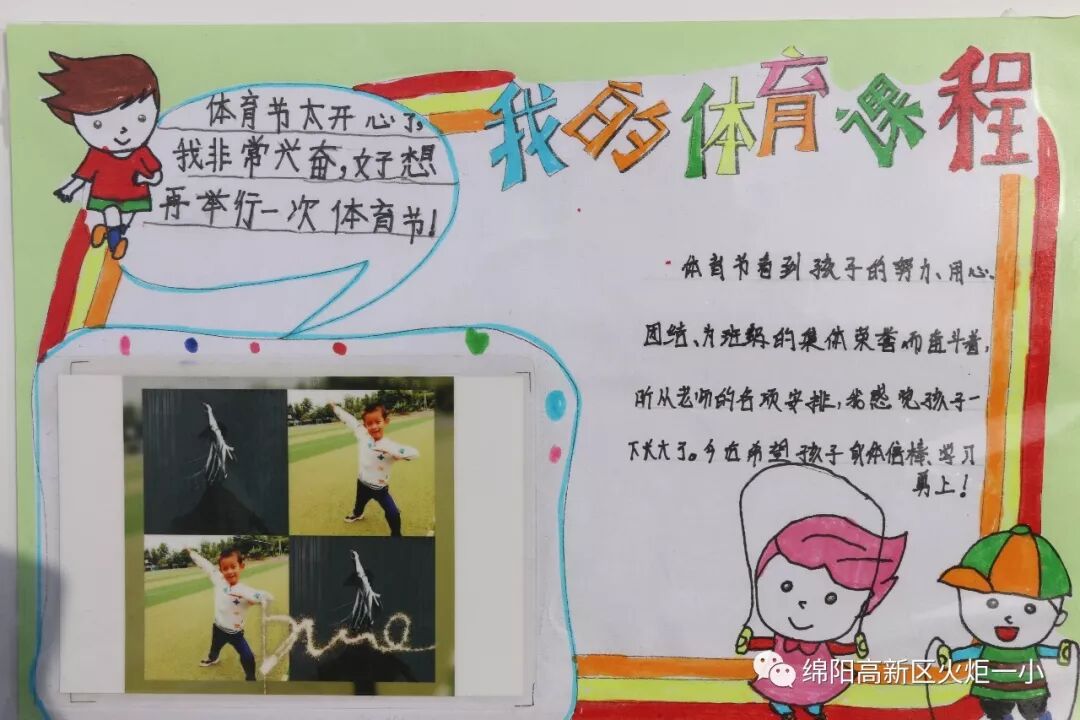 我的体育课程
体育节太开心了,
我非常兴奋,好想
再举行一次体育节!
体育节看到孩子的努力、用心、
团结、为班级的集体荣誉而奋斗着,
听从老师的各项安排,我感觉孩子一
下长大了。今后希望孩子身体倍棒、学习
勇上!
绵阳高新区火炬一小